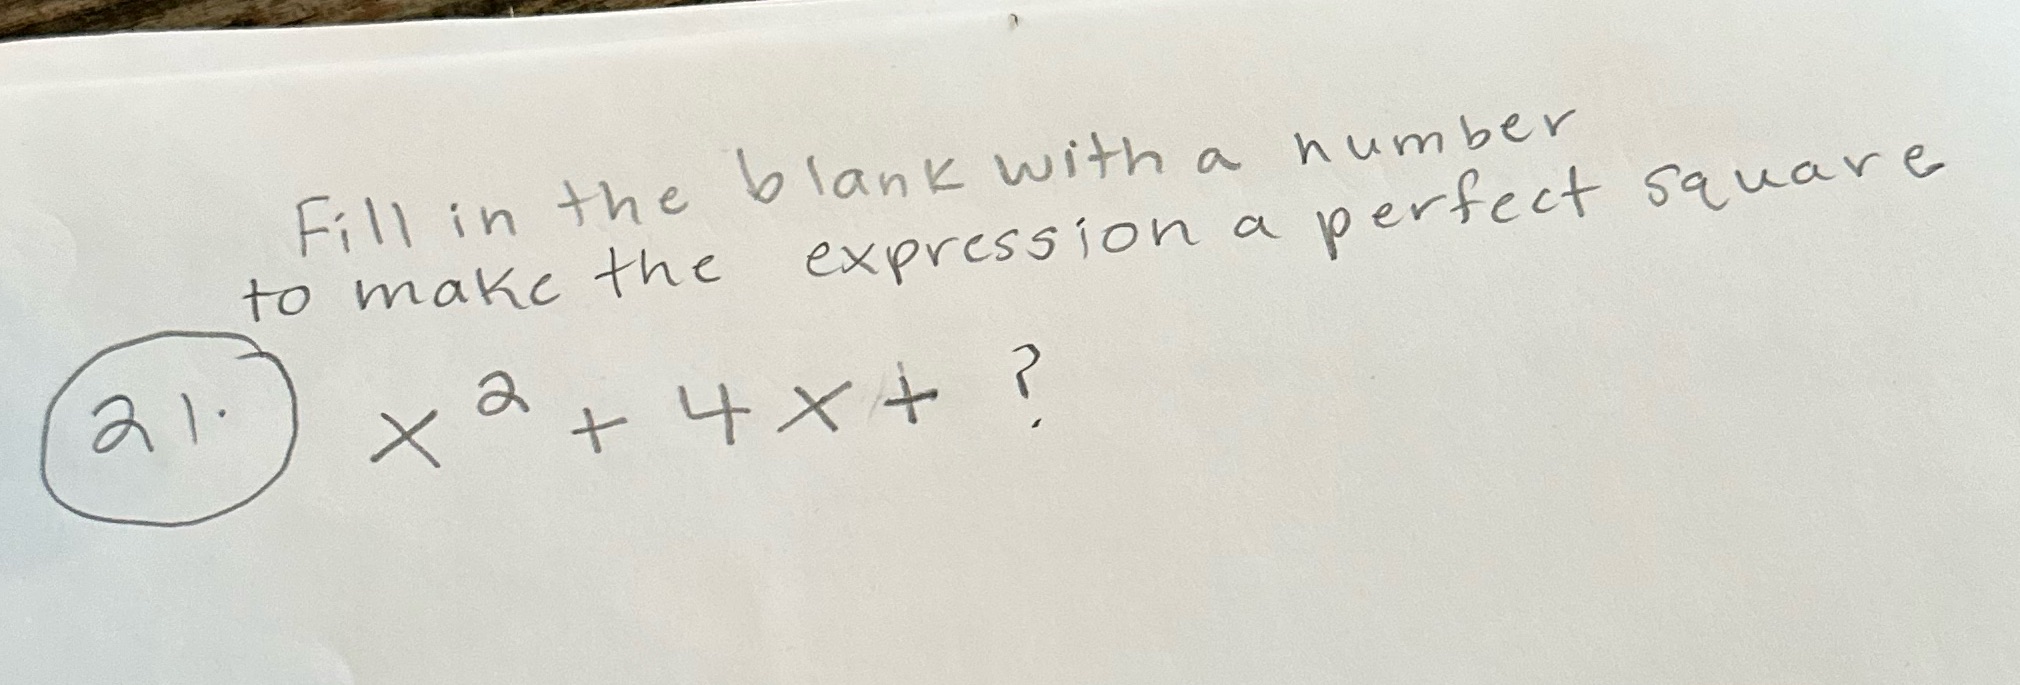 Fill in the blank with a number
to make the expression a perfect square
21. x² + 4x + ?